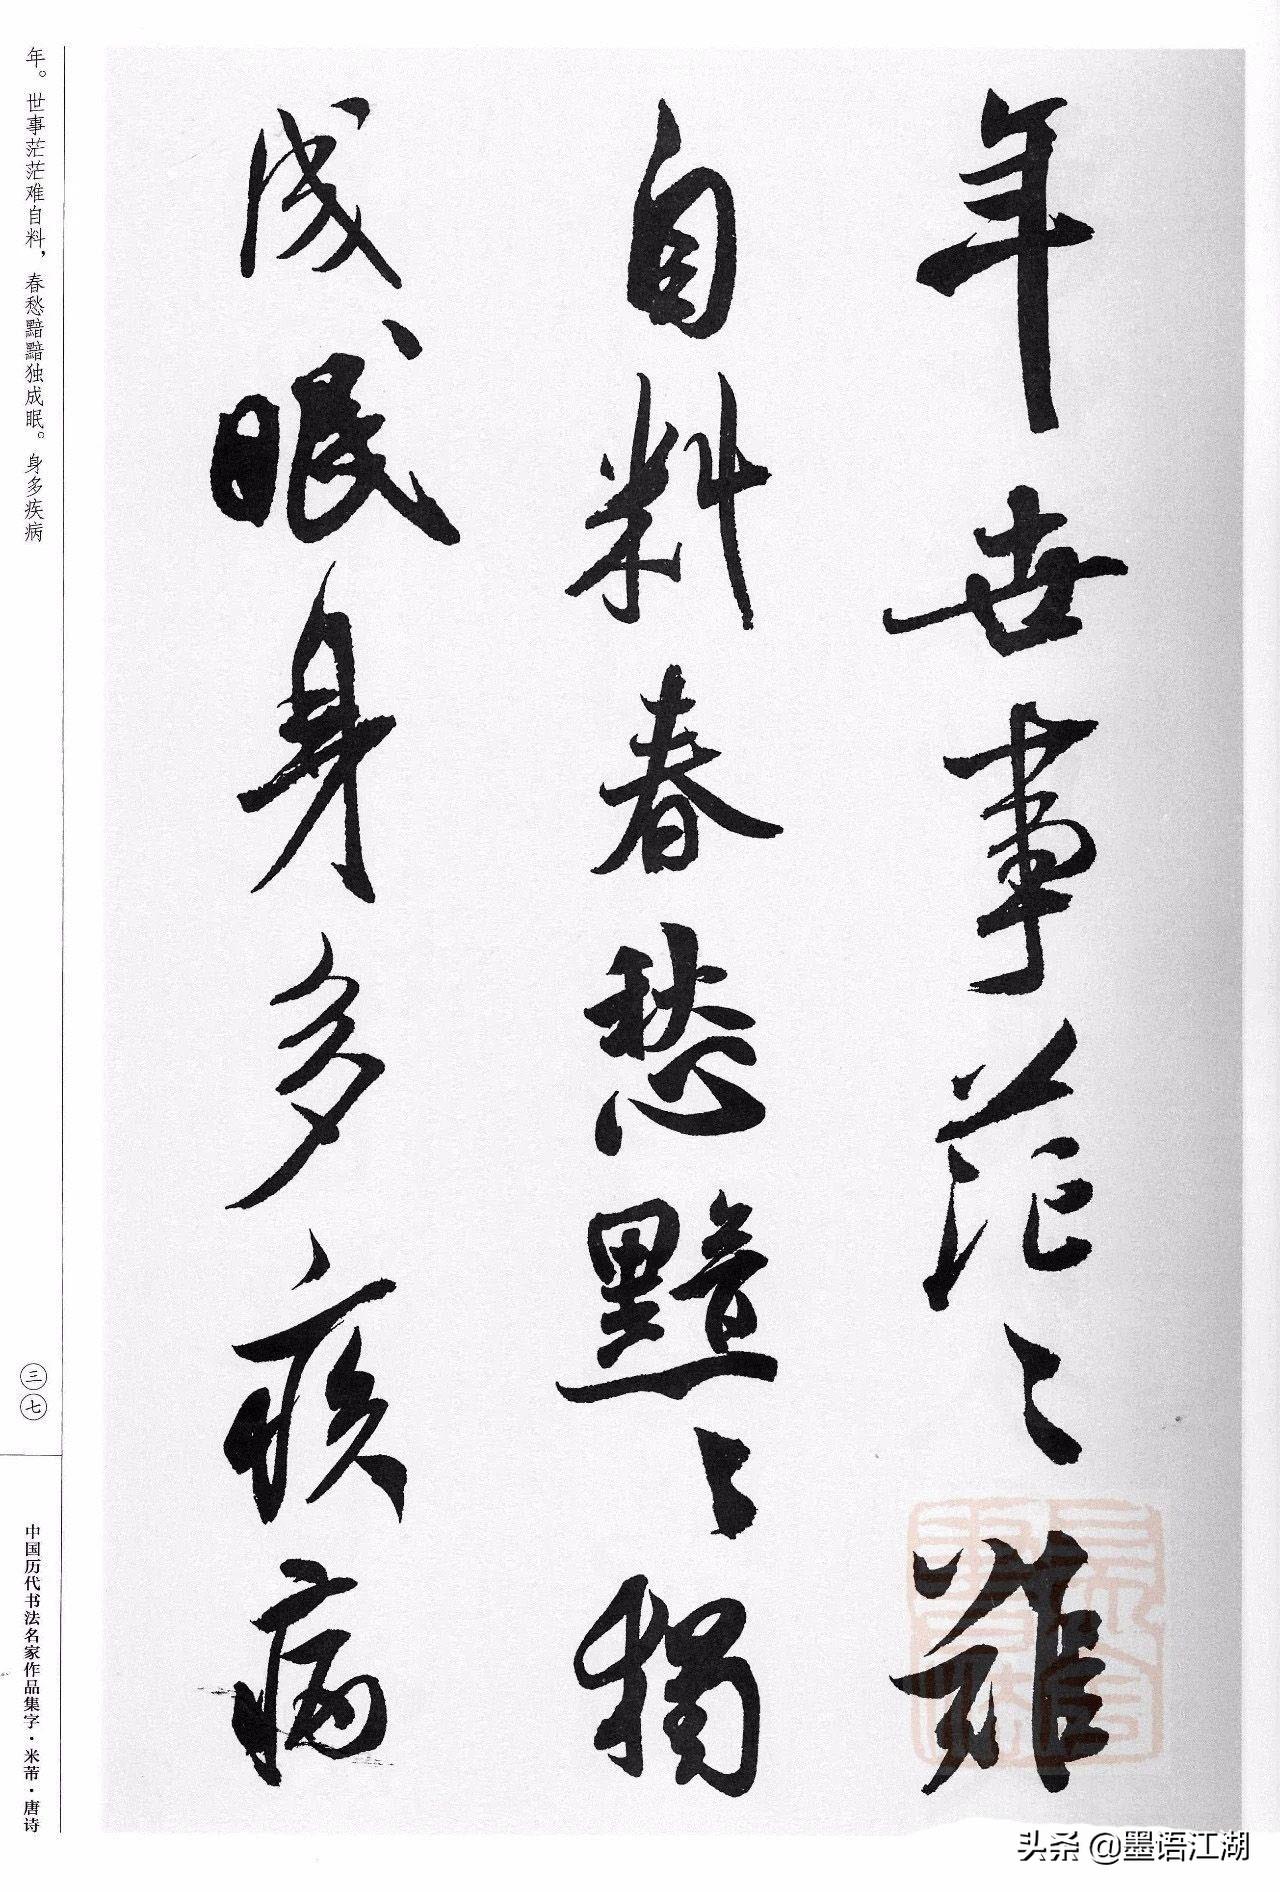 年世事茫〻難
自料春愁黯〻獨
成眠身多疾病
年。世事茫茫难自料，春愁黯黯独成眠。身多疾病
三七
中国历代书法名家作品集字·米芾·唐诗
头条 @墨语江湖